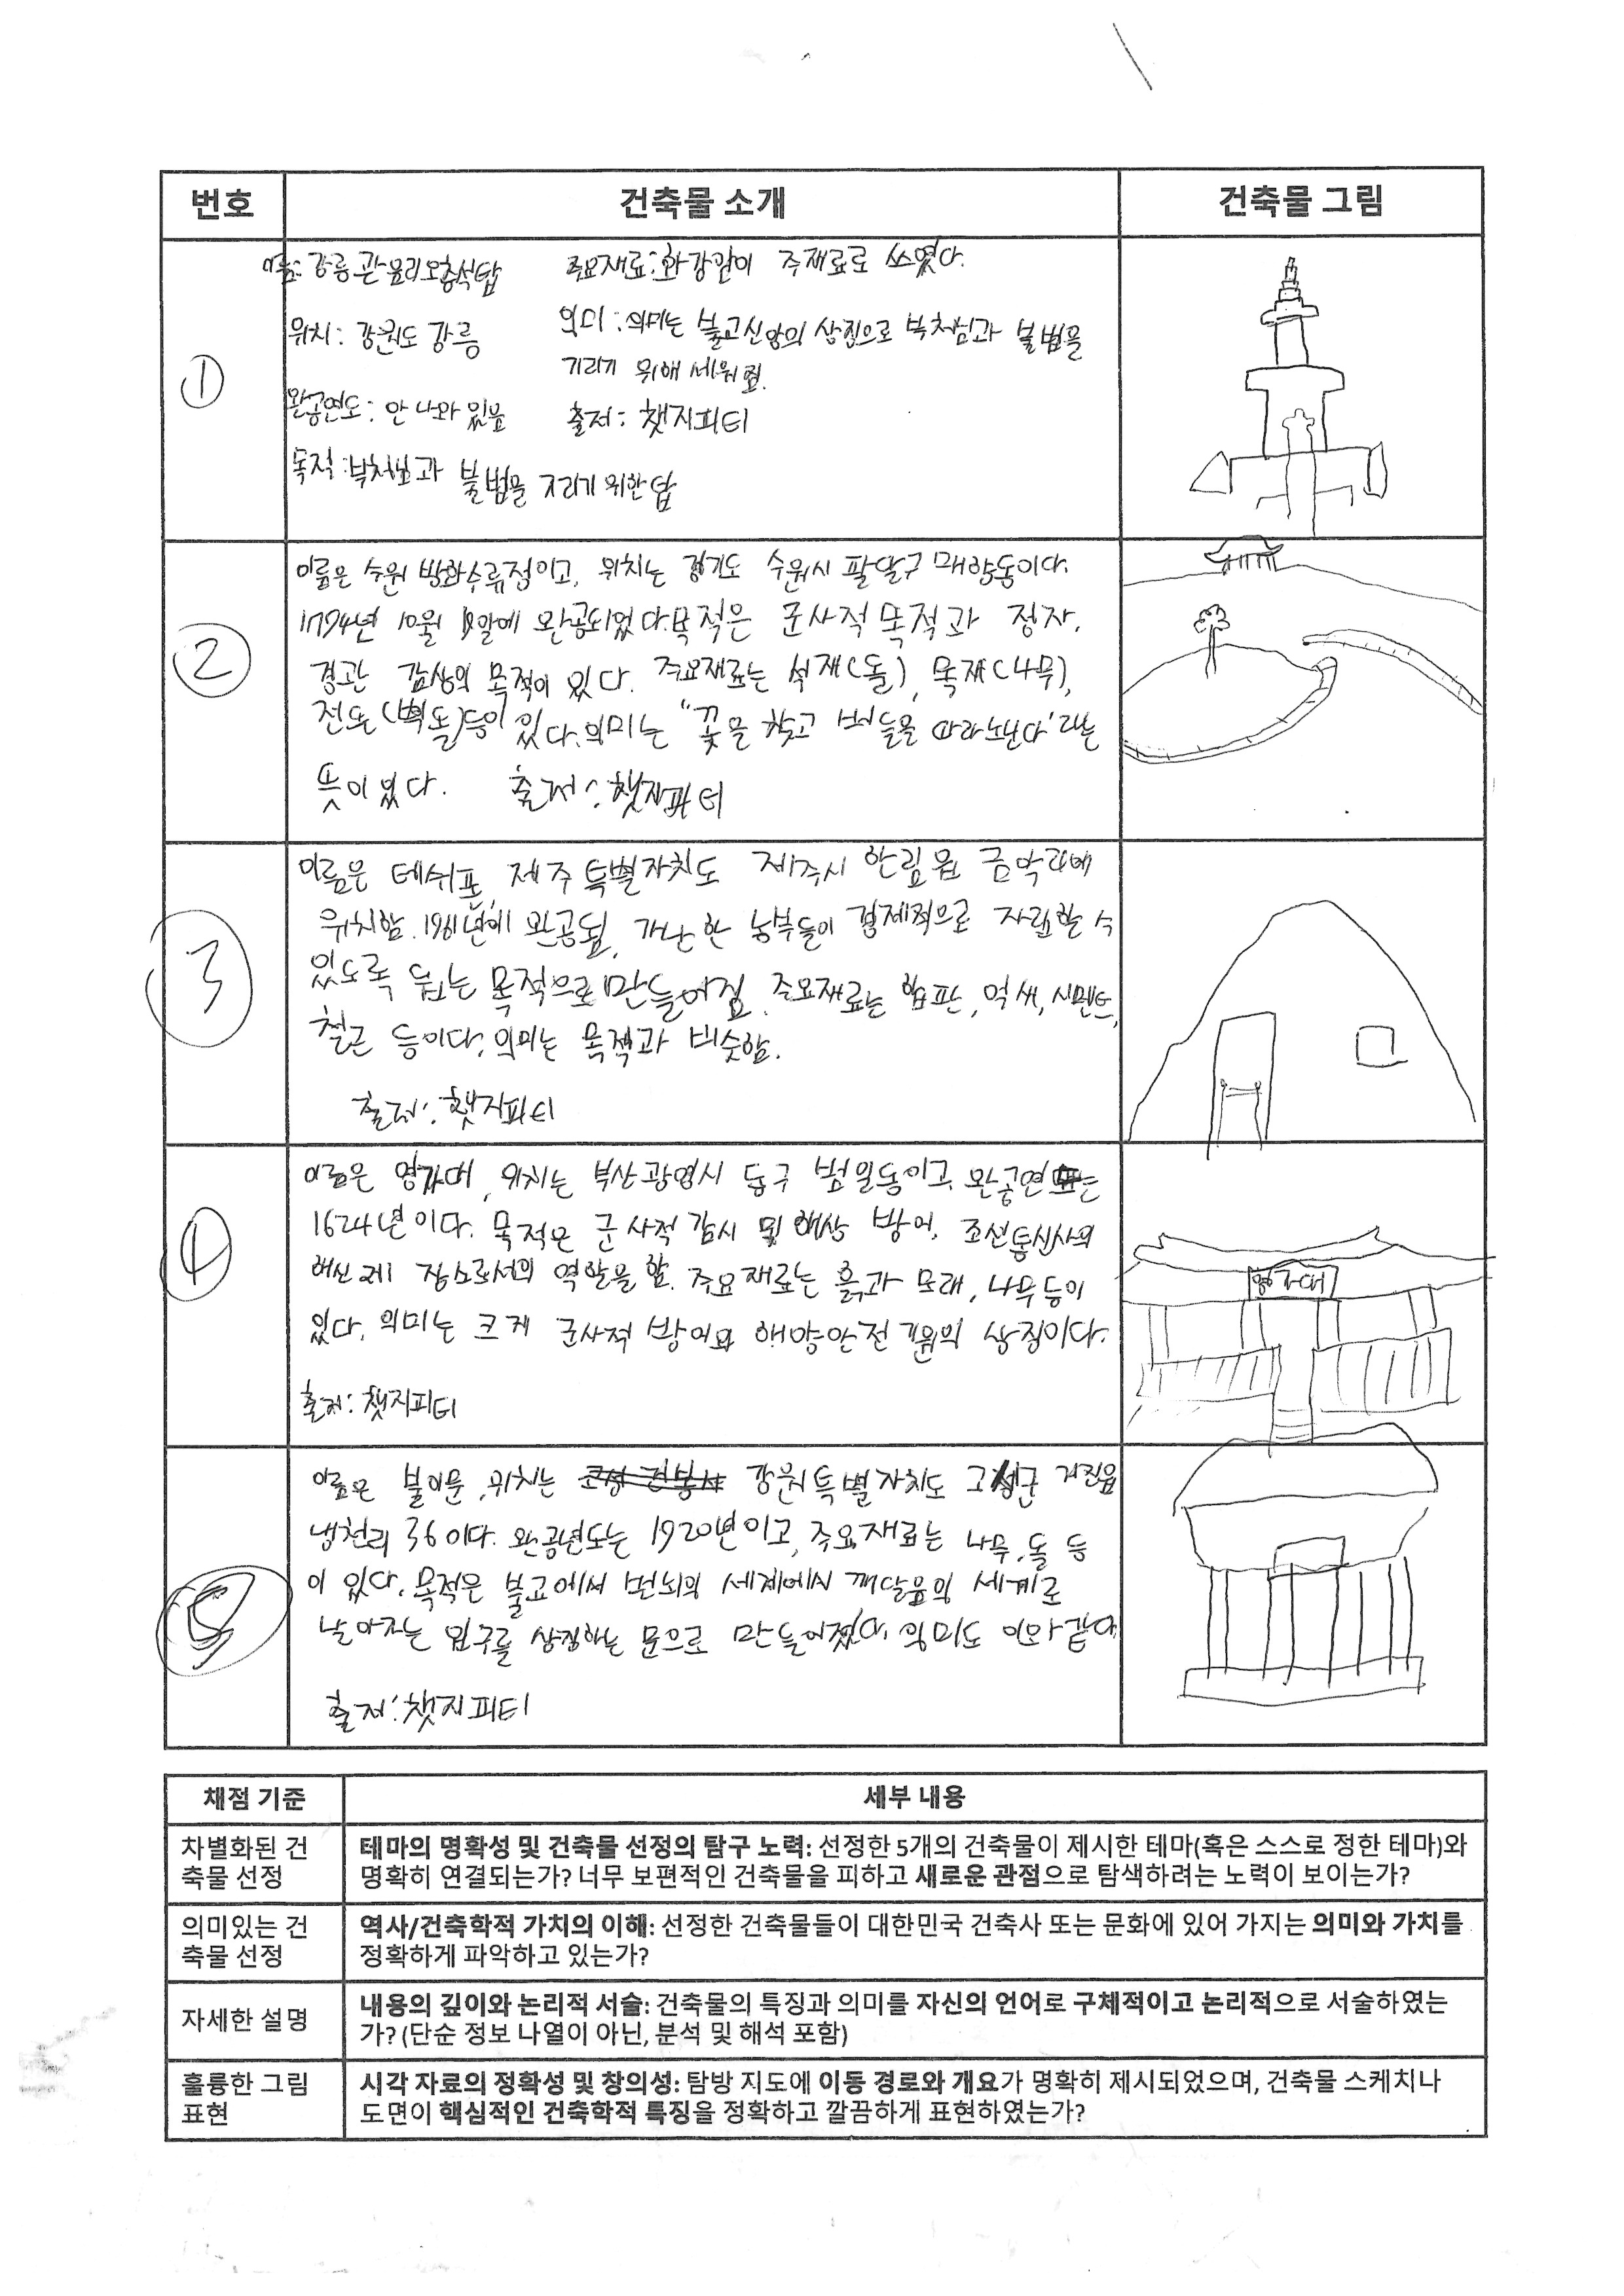 번호 건축물 소개 건축물 그림
①
이름: 강릉 관음리오층석탑
위치: 강원도 강릉
완공연도: 안 나와 있음
목적: 부처님과 불법을 기리기 위한 탑
주요재료: 화강암이 주재료로 쓰였다.
의미: 의미는 불교신앙의 상징으로 부처님과 불법을
기리기 위해 세워짐.
출처: 챗지피티
②
이름은 수원 방화수류정이고, 위치는 경기도 수원시 팔달구 매향동이다.
1794년 10월 19일에 완공되었다. 목적은 군사적 목적과 정자,
경관 감상의 목적이 있다. 주요재료는 석재(돌), 목재(나무),
전돌(벽돌)등이 있다. 의미는 "꽃을 찾고 버들을 따라 노닌다"라는
뜻이 있다. 출처: 챗지피티
3
이름은 테쉬폰, 제주특별자치도 제주시 한림읍 금악리에
위치함. 1961년에 완공됨, 가난한 농부들이 경제적으로 자립할 수
있도록 돕는 목적으로 만들어짐. 주요재료는 합판, 억새, 시멘트,
철근 등이다. 의미는 목적과 비슷함.
출처: 챗지피티
4
이름은 영가대, 위치는 부산광역시 동구 범일동이고, 완공연도는
1624년이다. 목적은 군사적 감시 및 해상 방어, 조선통신사의
해신제 장소로서의 역할을 함. 주요재료는 흙과 모래, 나무등이
있다. 의미는 크게 군사적 방어와 해양안전 기원의 상징이다.
출처: 챗지피티
영가대
5
이름은 불이문, 위치는 고성 건봉사 강원특별자치도 고성군 거진읍
냉천리 36이다. 완공년도는 1920년이고, 주요재료는 나무, 돌 등
이 있다. 목적은 불교에서 번뇌의 세계에서 깨달음의 세계로
날아가는 입구를 상징하는 문으로 만들어졌다. 의미도 이와 같다
출처: 챗지피티
채점 기준 세부 내용
차별화된 건
축물 선정
테마의 명확성 및 건축물 선정의 탐구 노력: 선정한 5개의 건축물이 제시한 테마(혹은 스스로 정한 테마)와
명확히 연결되는가? 너무 보편적인 건축물을 피하고 새로운 관점으로 탐색하려는 노력이 보이는가?
의미있는 건
축물 선정
역사/건축학적 가치의 이해: 선정한 건축물들이 대한민국 건축사 또는 문화에 있어 가지는 의미와 가치를
정확하게 파악하고 있는가?
자세한 설명
내용의 깊이와 논리적 서술: 건축물의 특징과 의미를 자신의 언어로 구체적이고 논리적으로 서술하였는
가? (단순 정보 나열이 아닌, 분석 및 해석 포함)
훌륭한 그림
표현
시각 자료의 정확성 및 창의성: 탐방 지도에 이동 경로와 개요가 명확히 제시되었으며, 건축물 스케치나
도면이 핵심적인 건축학적 특징을 정확하고 깔끔하게 표현하였는가?